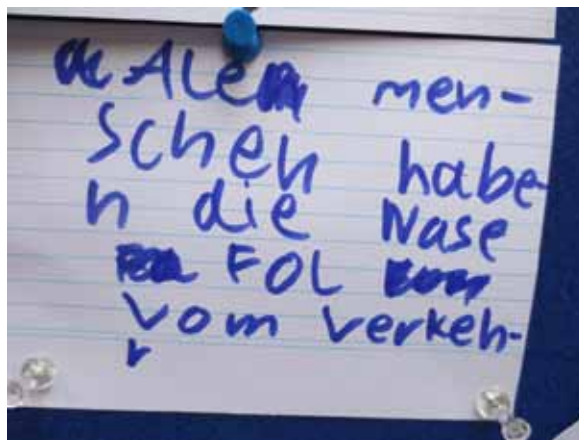 ALE men-
schen habe-
n die Nase
FOL
vom verkeh-
r